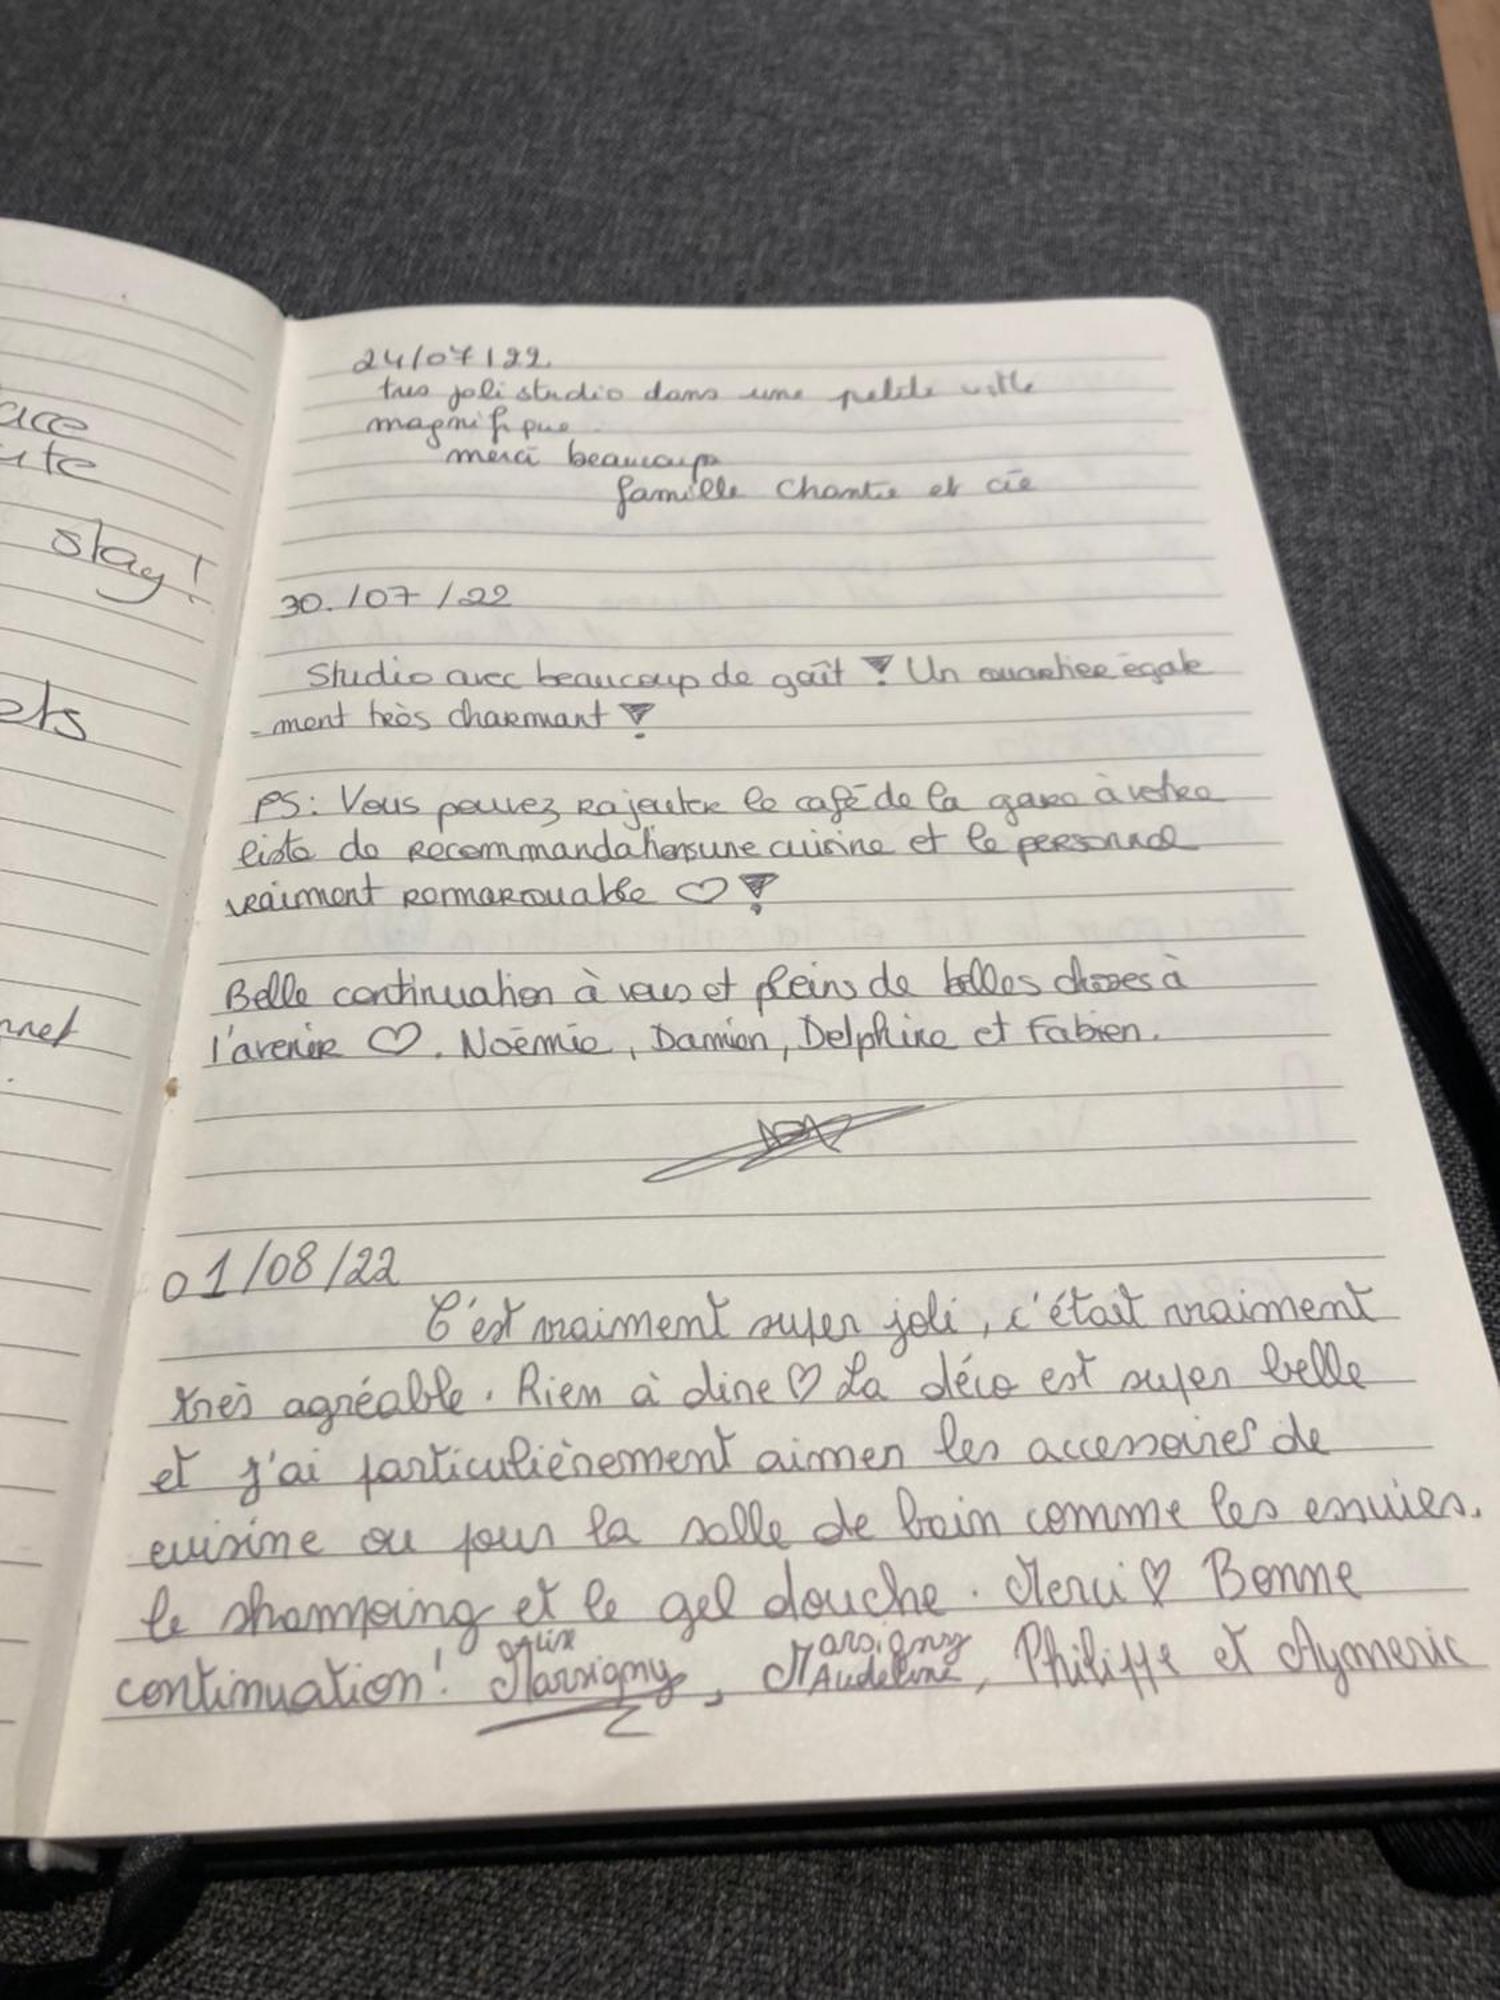 ace
ute
stay!
ets
nnet
24/07/22.
tres joli studio dans une petite ville
magnifique
merci beaucoup
famille Chantie et cie
30./07/22
Studio avec beaucoup de goût ! Un quartier égale
-ment très charmant !
PS: Vous pouvez rajouter le café de la gare à votre
liste de recommandations une cuisine et le personnel
vraiment remarquable ♡ !
Belle continuation à vous et pleins de belles choses à
l'avenir ♡. Noémie, Damien, Delphine et Fabien.
01/08/22
C'est vraiment super joli, c'était vraiment
très agréable. Rien à dire ♡ La déco est super belle
et j'ai particulièrement aimer les accessoires de
cuisine ou pour la salle de bain comme les essuies,
le shampoing et le gel douche. Merci ♡ Bonne
continuation! Alix Marsigny, Marsigny Audeline, Philippe et Aymeric